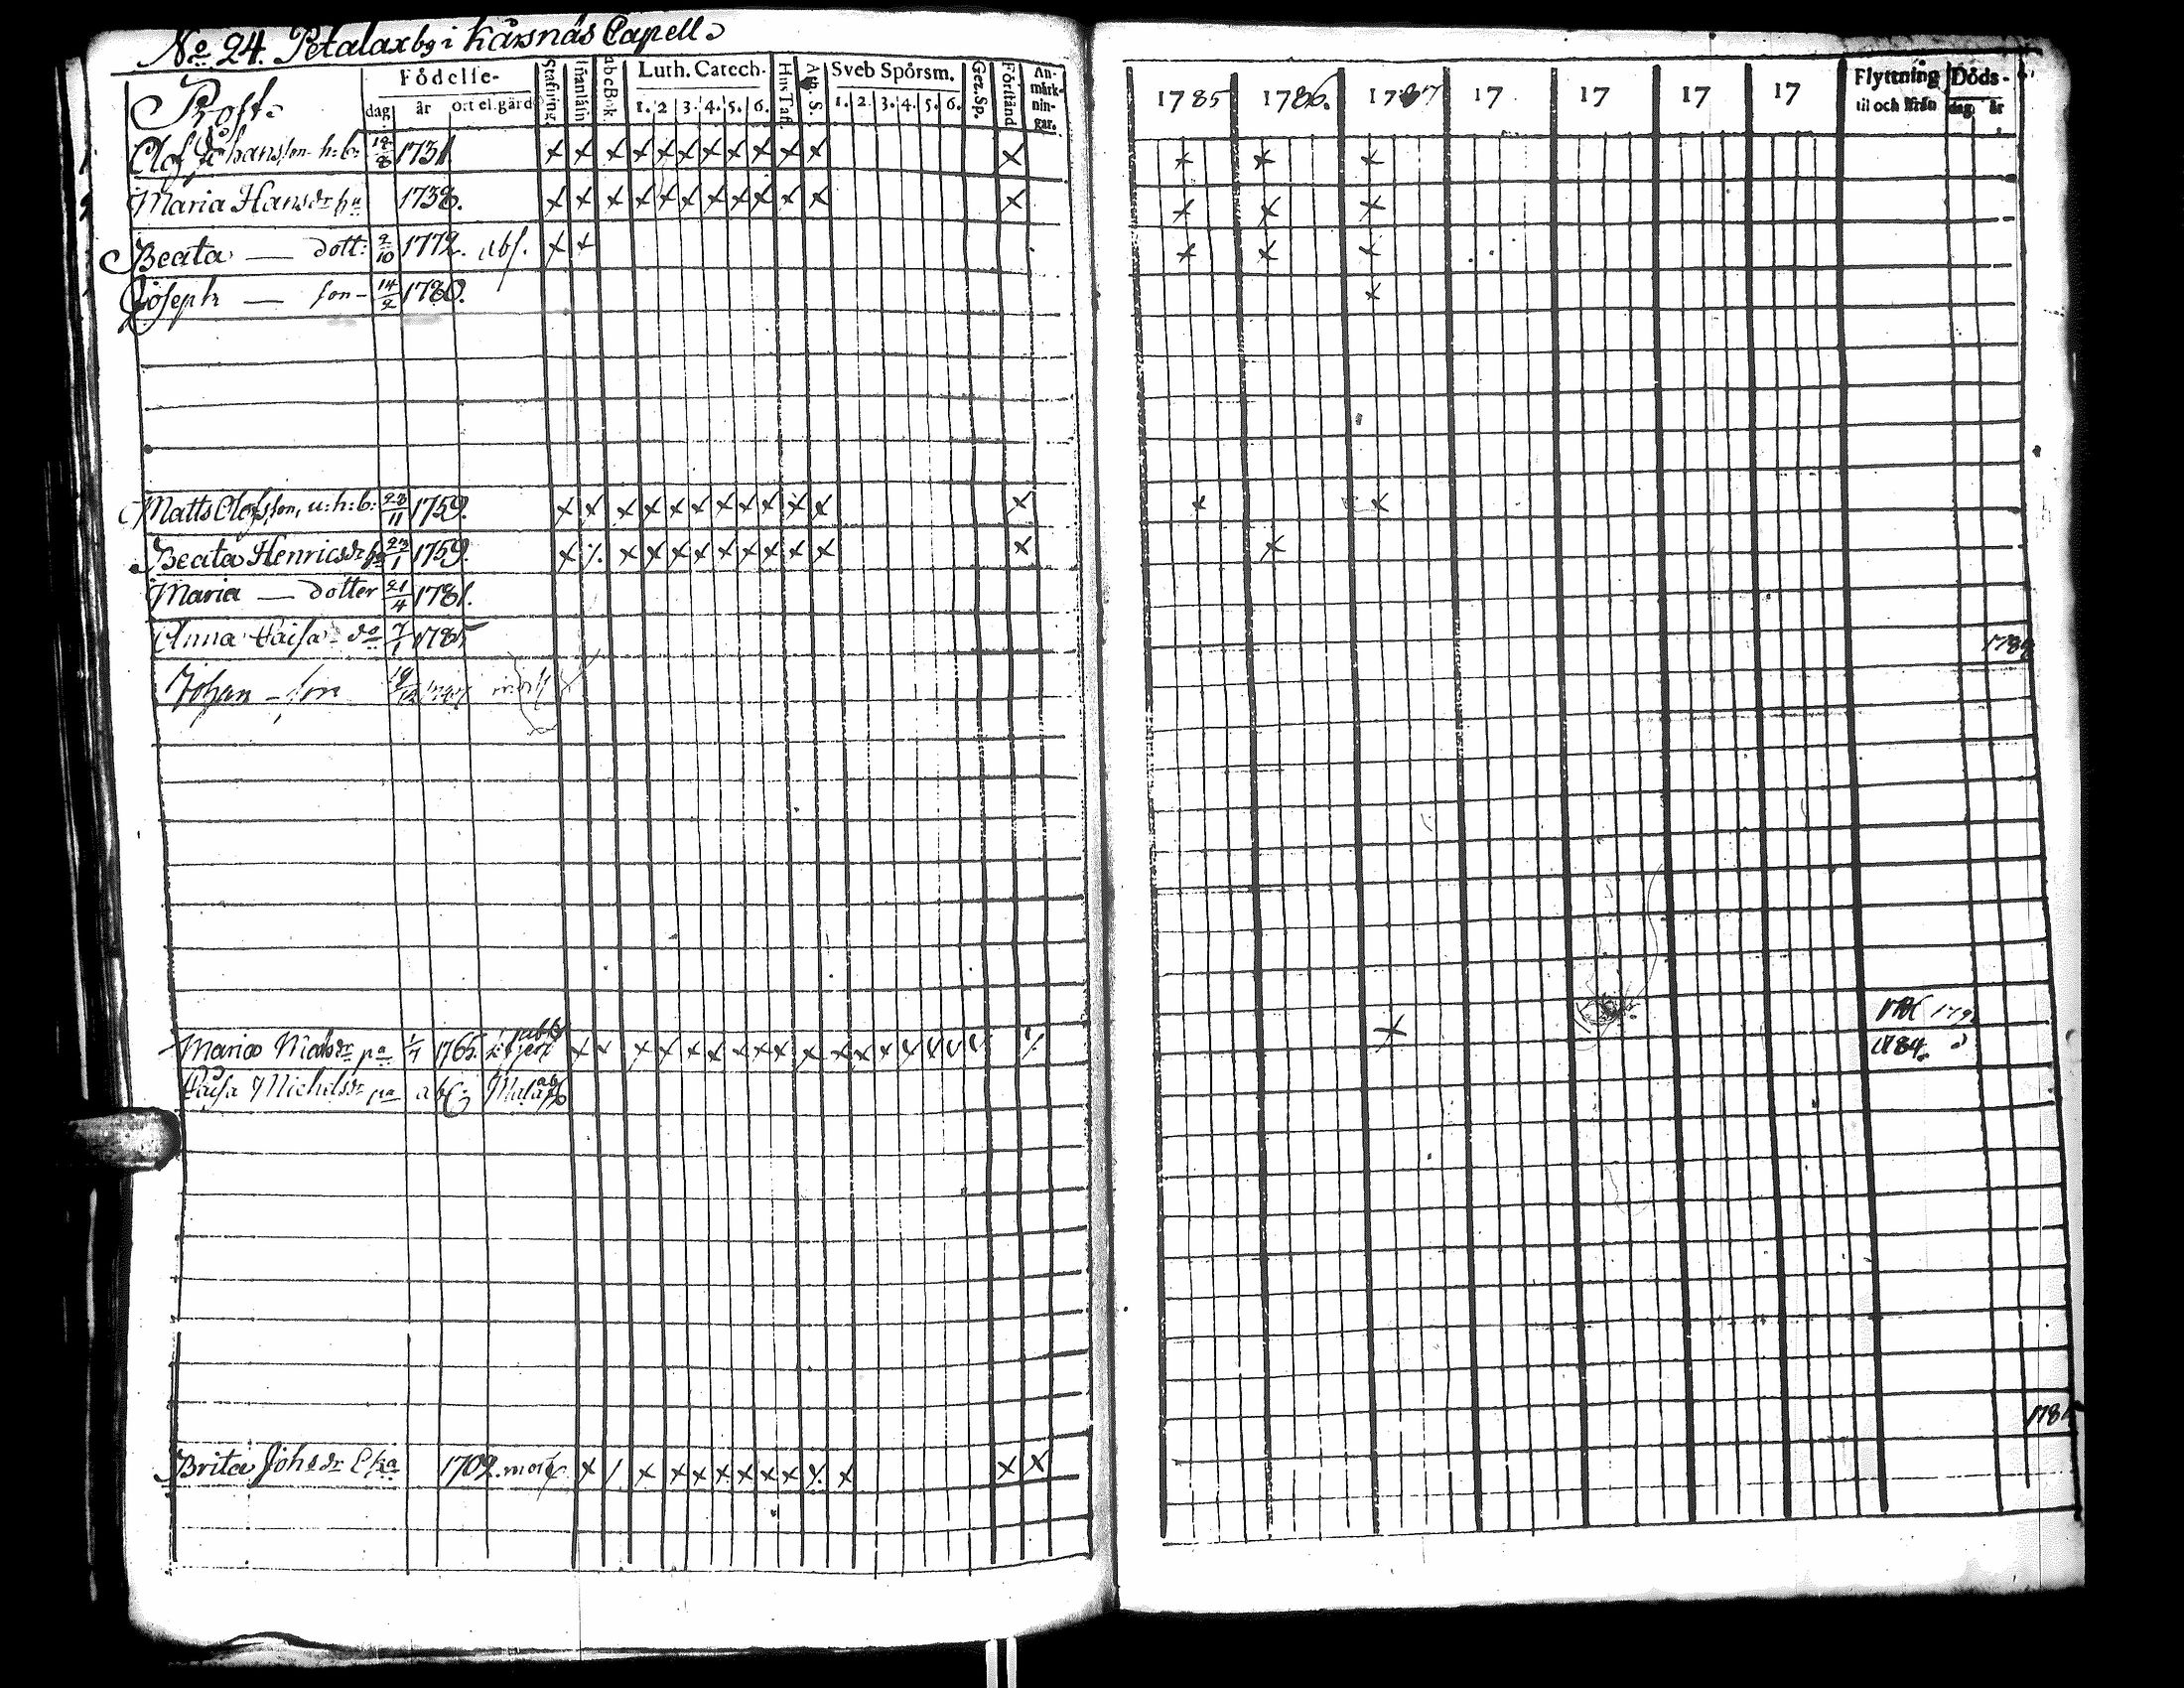 No 24. Petalax by i Kårsnäs Capell.
Födelse- Stafning. Innanläsn abcBok Luth. Catech. Hus Tafl. Ath. S. Sveb Spörsm. Gez.Sp. Förstånd An-märk-nin-gar. 1785 1786. 1787 17 17 17 17 Flyttning Döds-
Rost. dag. år ort el. gård 1. 2 3. 4. 5. 6. 1. 2. 3. 4. 5. 6. til och ifrån dag år
Olof Johansson h:b: 18/8 1731. x x x x x x x x x x x x x x x
Maria Hansdr hu 1738. x x x x x x x x x x x x x x x
Beata — dott: 2/10 1772. abs. x x x x x
Joseph — son - 14/2 1780. x
Matts Olofsson, u:h:b: 23/11 1759. x x x x x x x x x x x x x x
Beata Henricsdr hu 23/1 1759. x ٪ x x x x x x x x x x x
Maria — dotter 21/4 1781.
Anna Caisa do 7/1 1785
Johan - son mort
Maria Matsdr pa 1/7 1765. x x x x x x x x x x x x x x 1784.
Caisa Michelsdr pa abs Malax
Brita Johsdr Eka 1702. mort x / x x x x x x x x x x x